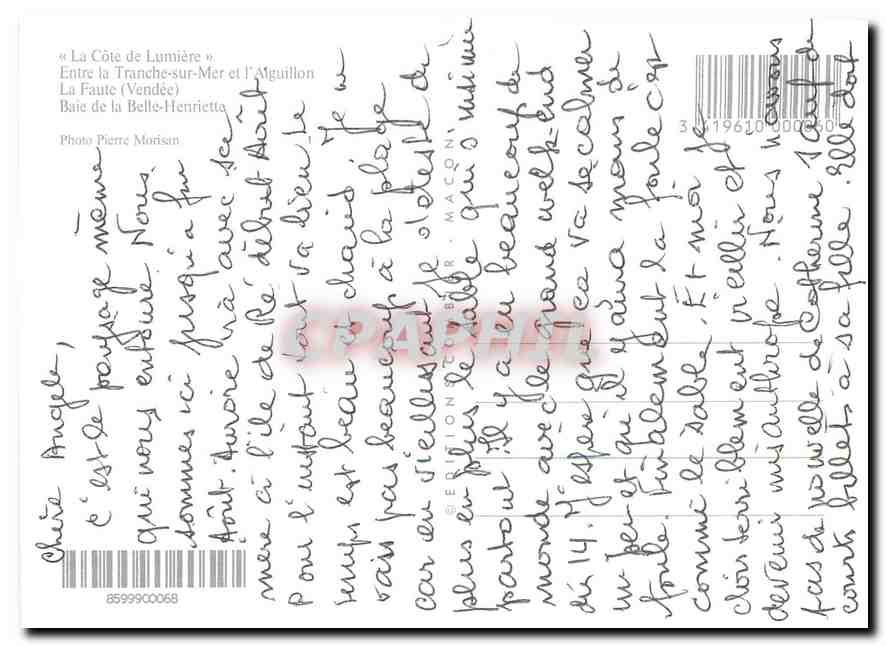 « La Côte de Lumière »
Entre la Tranche-sur-Mer et l'Aiguillon
La Faute (Vendée)
Baie de la Belle-Henriette
Photo Pierre Morisan
3 419610 000060
8599900068
© EDITIONS COMBIER - MACON
CPAPHIL
Chère Angele,
c'est le paysage même
qui nous entoure. Nous
sommes ici jusqu'à fin
Août. Aurore ira avec sa
mère à l'île de Ré début Août
Pour l'instant tout va bien le
temps est beau et chaud. Je ne
vais pas beaucoup à la plage
car en vieillissant je déteste de
plus en plus le sable qui s'insinue
partout. Il y a eu beaucoup de
monde avec le grand week-end
du 14. J'espère que ça va se calmer
un peu et qu'il y aura moins de
foule. Finalement la foule c'est
comme le sable. Et moi je
dois terriblement vieillir et
devenir misanthrope. Nous n'avons
pas de nouvelle de Catherine sauf de
courts billets à sa fille. Elle doit